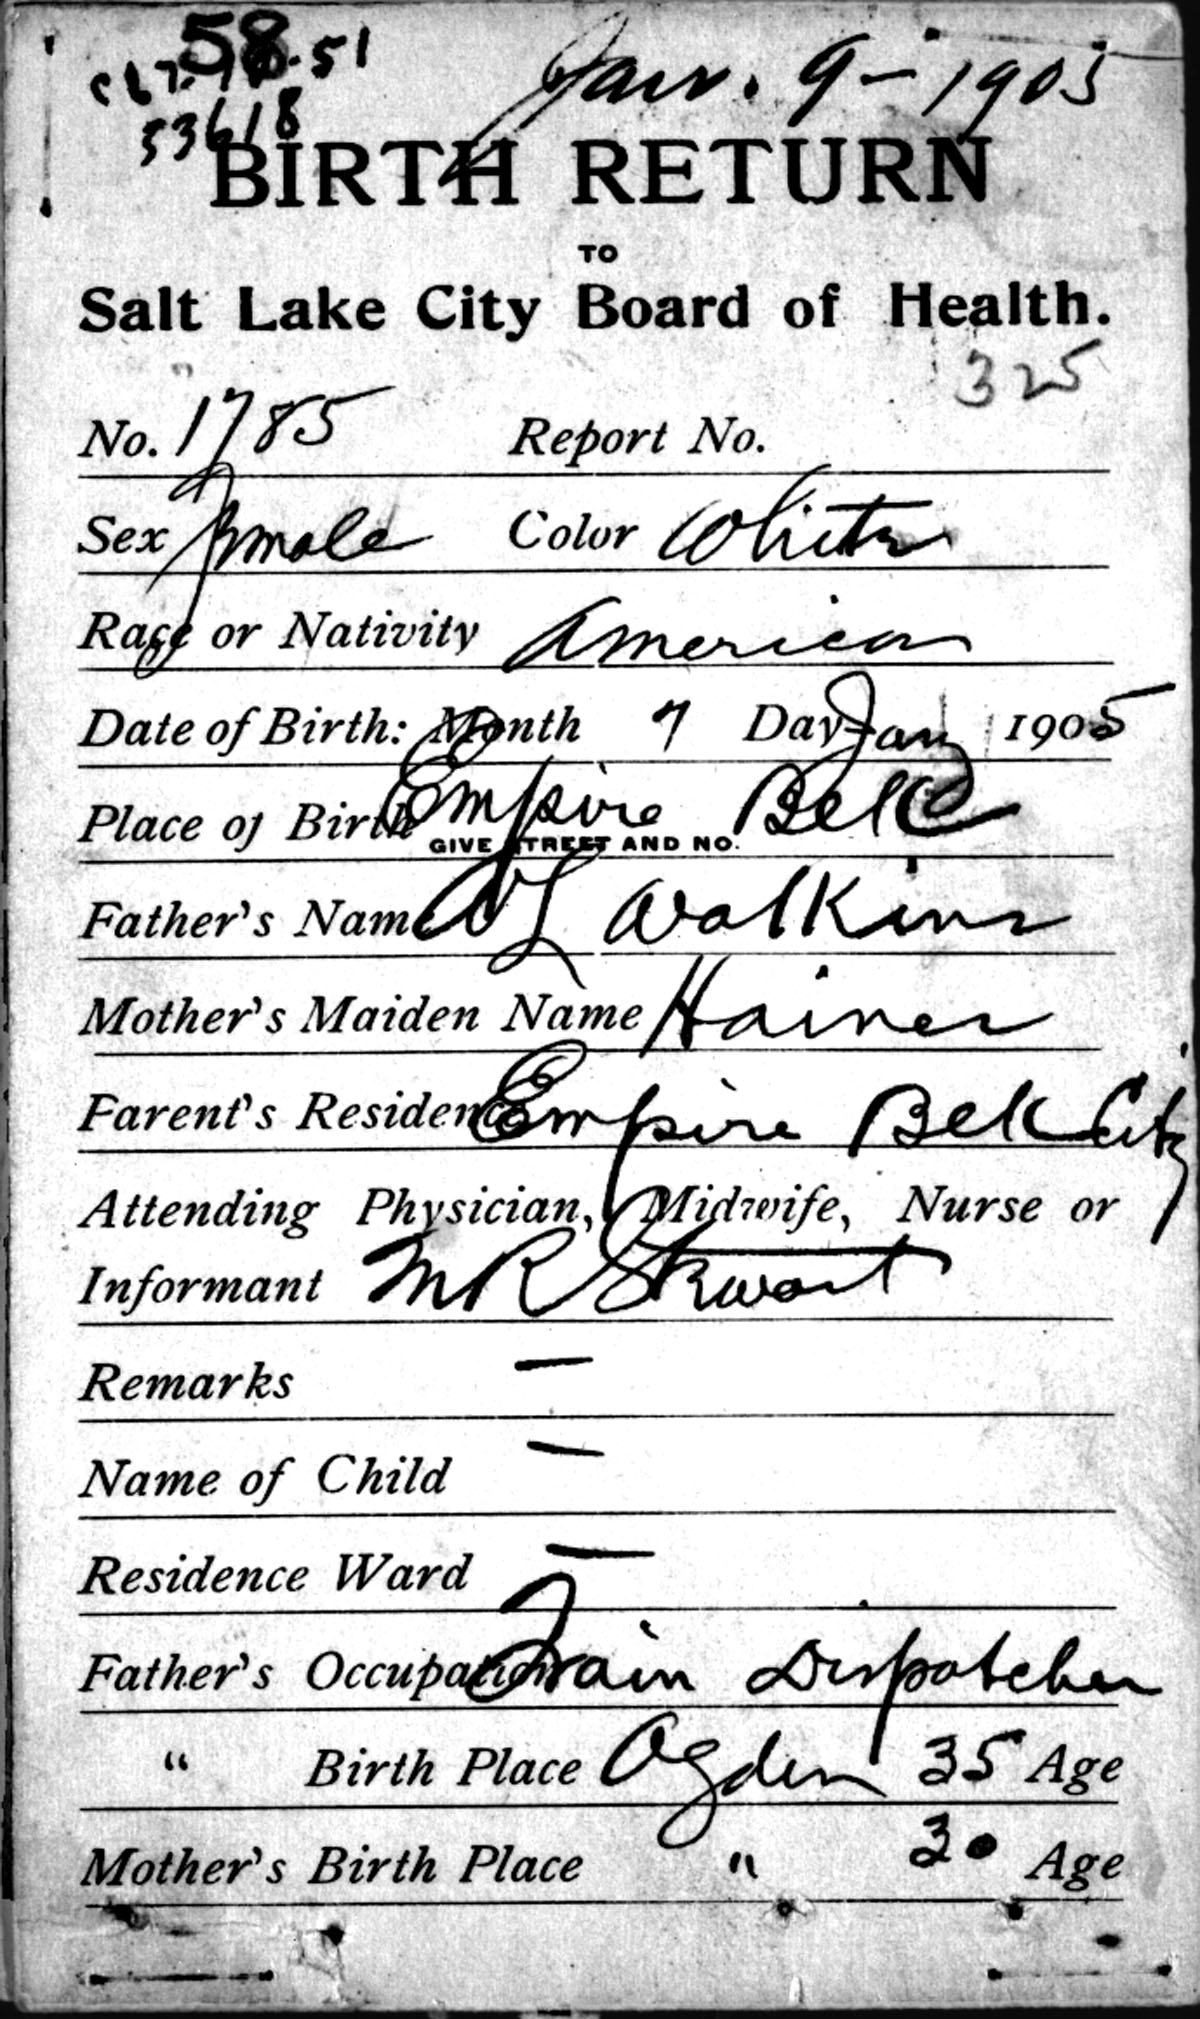 58
Jan. 9 - 1905
53618
BIRTH RETURN
TO
Salt Lake City Board of Health.
325
No. 1785 Report No.
Sex female Color White
Race or Nativity American
Date of Birth: Month 7 Day Jany 1905
Place of Birth Empire Belk
GIVE STREET AND NO.
Father's Name Walkins
Mother's Maiden Name Haines
Farent's Residence Empire Belk City
Attending Physician, Midwife, Nurse or
Informant M R Stewart
Remarks —
Name of Child —
Residence Ward —
Father's Occupation Train Dispatcher
" Birth Place Ogden 35 Age
Mother's Birth Place " 30 Age